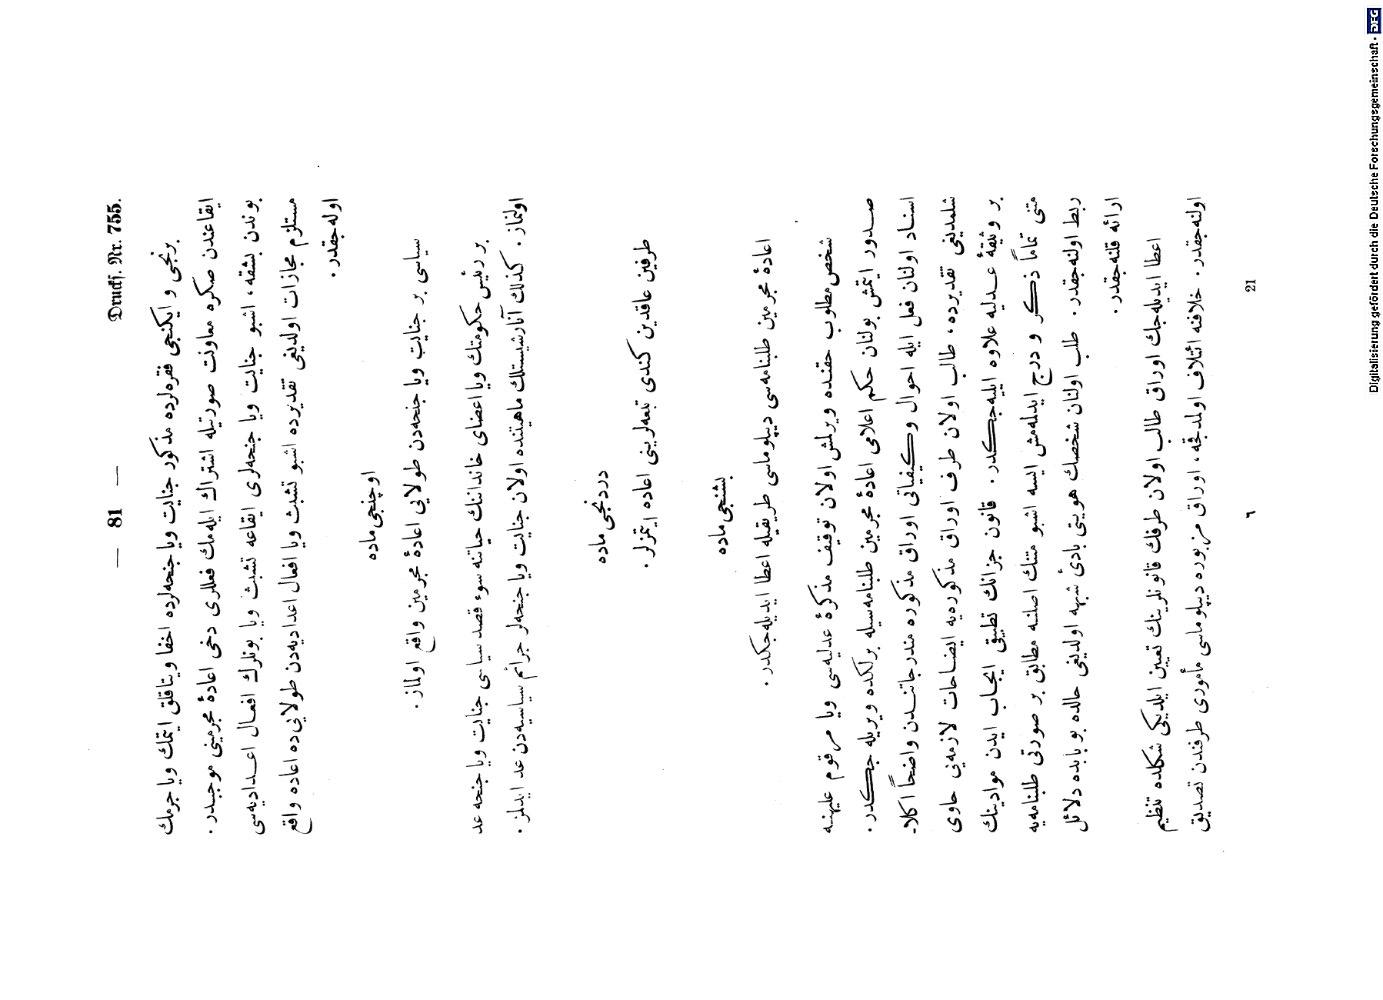 — 81 —
Drucks. Nr. 755.
برنجی و ایکنجی فقره‌لرده مذکور جنایت ویا جنحه‌لرده اخفا ویتاقلق ایتمك ویا جرمك
ایقاعندن صکره معاونت صورتیله اشتراك ایله‌مك فعللری دخی اعادۀ مجرمینی موجبدر.
بوندن بشقه، اشبو جنایت ویا جنحه‌لری ایقاعه تشبث ویا بونلرك افعال اعدادیه‌سی
مستلزم مجازات اولدیغی تقدیرده اشبو تشبث ویا افعال اعدادیه‌دن طولایی‌ده اعاده واقع
اوله‌جقدر.
اوچنجی ماده
سیاسی بر جنایت ویا جنحه‌دن طولایی اعادۀ مجرمین واقع اولماز.
بر رئیس حکومتك ویا اعضای خانداننك حیاتنه سوء قصد سیاسی جنایت ویا جنحه عد
اولنماز. کذلك آنارشیستلك ماهیتنده اولان جنایت ویا جنحه‌لر جرائم سیاسیه‌دن عد ایدلمز.
دردنجی ماده
طرفین عاقدین کندی تبعه‌لرینی اعاده ایتمزلر.
بشنجی ماده
اعادۀ مجرمین طلبنامه‌سی دیپلوماسی طریقیله اعطا ایدیله‌جکدر.
شخص مطلوب حقنده ویرلمش اولان توقیف مذکرۀ عدلیه‌سی ویا مرقوم علیهنه
صدور ایتمش بولنان حکم اعلامی اعادۀ مجرمین طلبنامه‌سیله برلکده ویریله‌جکدر.
اسناد اولنان فعل ایله احوال وکیفیاتی اوراق مذکوره مندرجاتندن واضحاً اکلا‌-
شلمدیغی تقدیرده، طالب اولان طرف اوراق مذکوره‌یه ایضاحات لازمه‌یی حاوی
بر وثیقۀ عدلیه علاوه ایلیه‌جکدر. قانون جزانك تطبیق ایجاب ایدن موادینك
متنی تماماً ذکر و درج ایدلمه‌مش ایسه اشبو متنك اصلنه مطابق بر صورتی طلبنامه‌یه
ربط اولنه‌جقدر. طلب اولنان شخصك هویتی بادئ شبهه اولدیغی حالده بو بابده دلائل
ارائه قلنه‌جقدر.
اعطا ایدیله‌جك اوراق طالب اولان طرفك قانونلرینك تعیین ایلدیکی شکلده تنظیم
اولنه‌جقدر. خلافنه ائتلاف اولمدقجه، اوراق مزبوره دیپلوماسی مأموری طرفندن تصدیق
٦
21
Digitalisierung gefördert durch die Deutsche Forschungsgemeinschaft · DFG